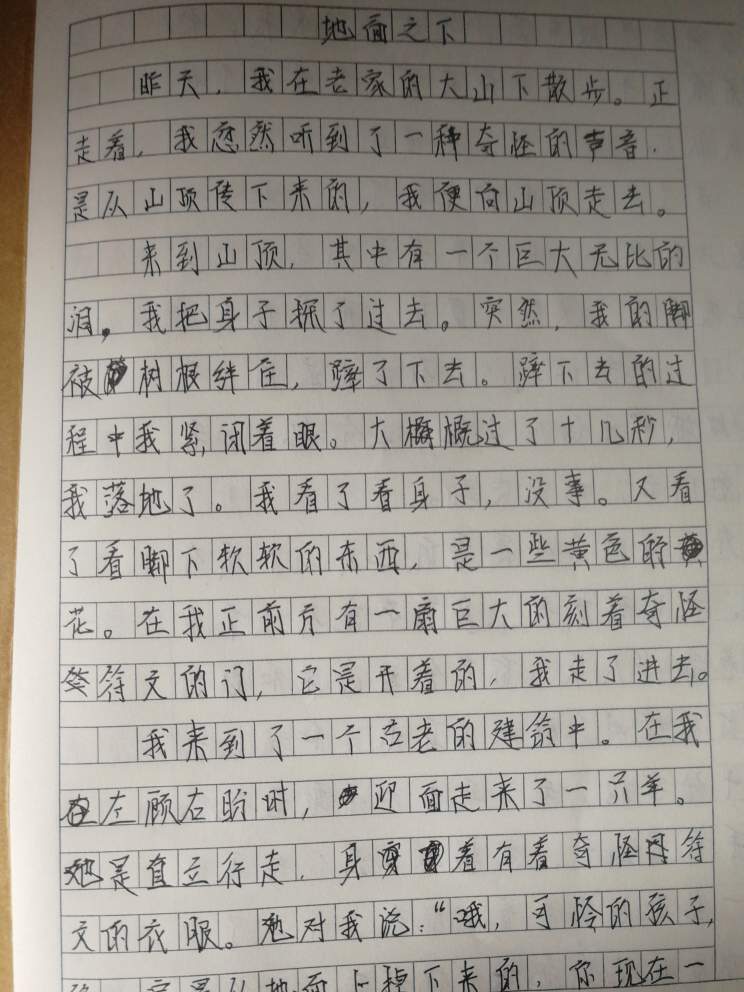 地面之下
昨天，我在老家的大山下散步。正
走着，我忽然听到了一种奇怪的声音，
是从山顶传下来的，我便向山顶走去。
来到山顶，其中有一个巨大无比的
洞。我把身子探了过去。突然，我的脚
被树根绊住，摔了下去。摔下去的过
程中我紧闭着眼。大概概过了十几秒，
我落地了。我看了看身子，没事。又看
了看脚下软软的东西，是一些黄色的
花。在我正前方有一扇巨大的刻着奇怪
符文的门，它是开着的，我走了进去。
我来到了一个古老的建筑中。在我
左顾右盼时，迎面走来了一只羊。
她是直立行走，身着有着奇怪符
文的衣服。她对我说：“哦，可怜的孩子，
定是从地面上掉下来的，你现在一